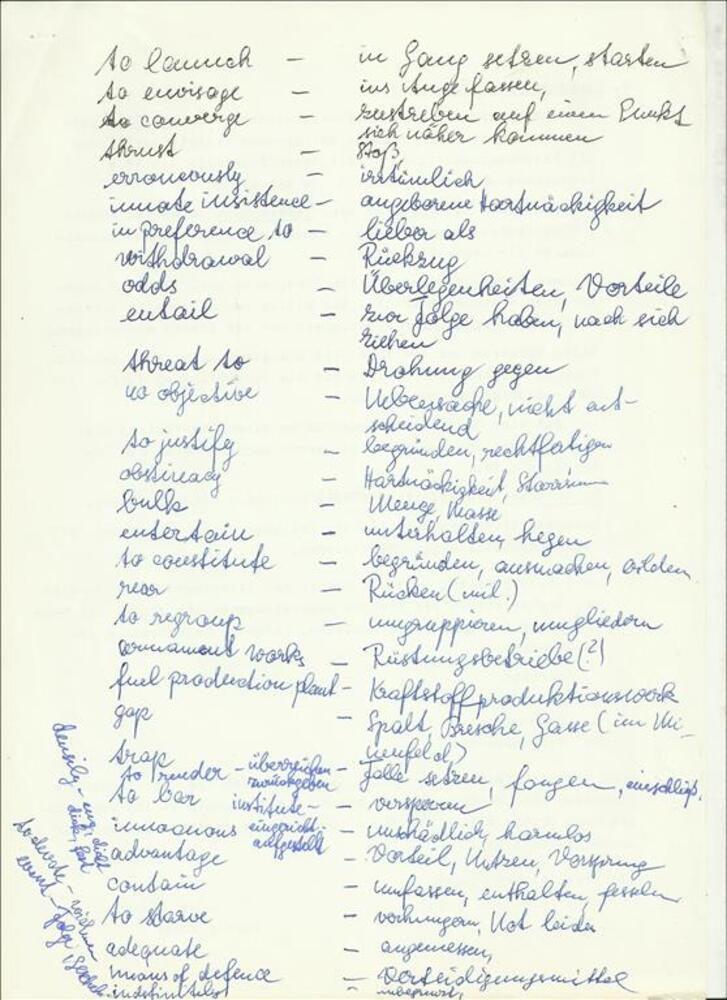 to launch – in Gang setzen, starten
to envisage – ins Auge fassen,
to converge – zustreben auf einen Punkt
sich näher kommen
thrust – Stoß
erroneously – irrtümlich
innate insistence – angeborene Hartnäckigkeit
in preference to – lieber als
withdrawal – Rückzug
odds – Überlegenheiten, Vorteile
entail – zur Folge haben, nach sich
ziehen
threat to – Drohung gegen
no objective – Nebensache, nicht ent-
scheidend
to justify – begründen, rechtfertigen
obstinacy – Hartnäckigkeit, Starrsinn
bulk – Menge, Masse
entertain – unterhalten, hegen
to constitute – begründen, ausmachen, bilden
rear – Rücken (mil.)
to regroup – umgruppieren, umgliedern
armament works – Rüstungsbetriebe (?)
fuel production plant – Kraftstoffproduktionswerk
gap – Spalt, Bresche, Gasse (im Mi-
nenfeld)
trap – Falle setzen, fangen, einschließ.
to render – überreichen
zurückgeben
to bar – versperren
institute – eingericht.
aufgestellt
innocuous – unschädlich, harmlos
advantage – Vorteil, Nutzen, Vorsprung
contain – umfassen, enthalten, fesseln
to starve – verhungern, Not leiden
adequate – angemessen,
means of defence – Verteidigungsmittel
indefinitely – unbegrenzt,
densily – eng, dicht
event – Folge